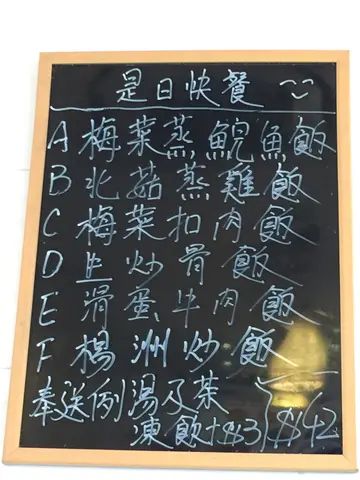 是日快餐
A 梅菜蒸鯇魚飯
B 北菇蒸雞飯
C 梅菜扣肉飯
D 炒骨飯
E 滑蛋牛肉飯
F 楊洲炒飯
奉送例湯及茶
凍飲+$3 $42